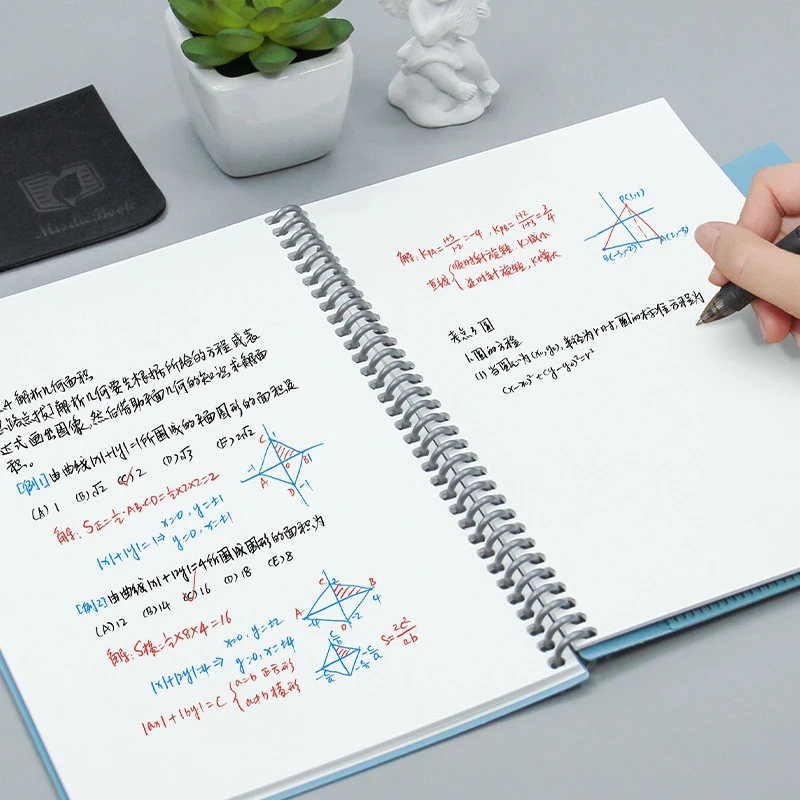 4 解析几何面积
思路点拨]解析几何要先根据所给的方程或表
达式画出图像,然后借助平面几何的知识求解面
积。
[例1]由曲线|x|+|y|=1所围成的平面图形的面积是
(A) 1 (B)√2 (C) 2 (D)√3 (E)2√2
解: S正=½·AB·CD=½×2×2=2
|x|+|y|=1⇒ x=0, y=±1
y=0, x=±1
C 1
-1 O B 1
A
D -1
[例2]由曲线|x|+|2y|=4所围成图形的面积为
(A)12 (B)14 (C)16 (D)18 (E)8
解: S棱=½×8×4=16
|x|+|2y|=4⇒ x=0, y=±2
y=0, x=±4
C 2
A B
-4 4
D -2
|ax|+|by|=C { a=b 正方形
a≠b 棱形
S=2c²/ab
解: KPA=(1+3)/(1-2)=-4, KPB=(1+2)/(1+3)=3/4
直线 { 顺时针旋转, K减小
逆时针旋转, K增大
P(1,1)
B(-3,-2) A(2,-3)
考点3 圆
1.圆的方程
(1) 当圆心为(x₀,y₀), 半径为r时,圆的标准方程为
(x-x₀)²+(y-y₀)²=r²